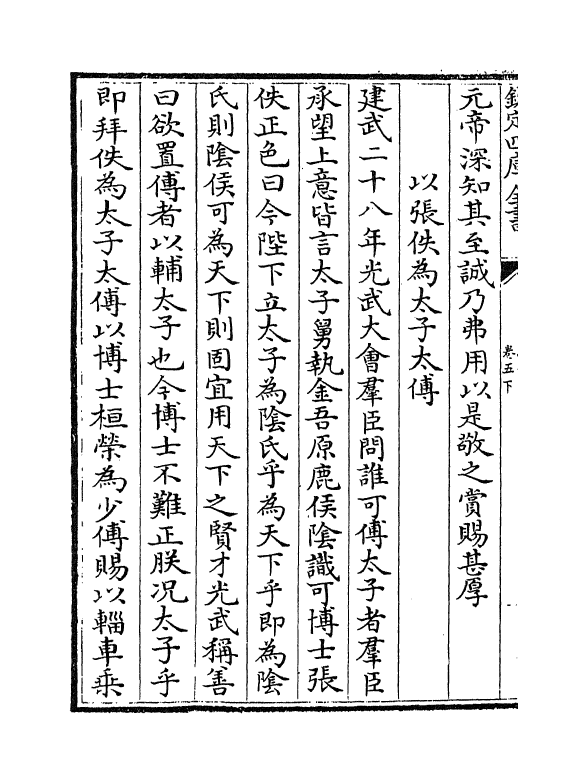 欽定四庫全書
卷五下
元帝深知其至誠乃弗用以是敬之賞賜甚厚
以張佚為太子太傅
建武二十八年光武大會羣臣問誰可傅太子者羣臣
承望上意皆言太子舅執金吾原鹿侯陰識可博士張
佚正色曰今陛下立太子為陰氏乎為天下乎即為陰
氏則陰侯可為天下則固宜用天下之賢才光武稱善
曰欲置傅者以輔太子也今博士不難正朕况太子乎
即拜佚為太子太傅以博士桓榮為少傅賜以輜車乘